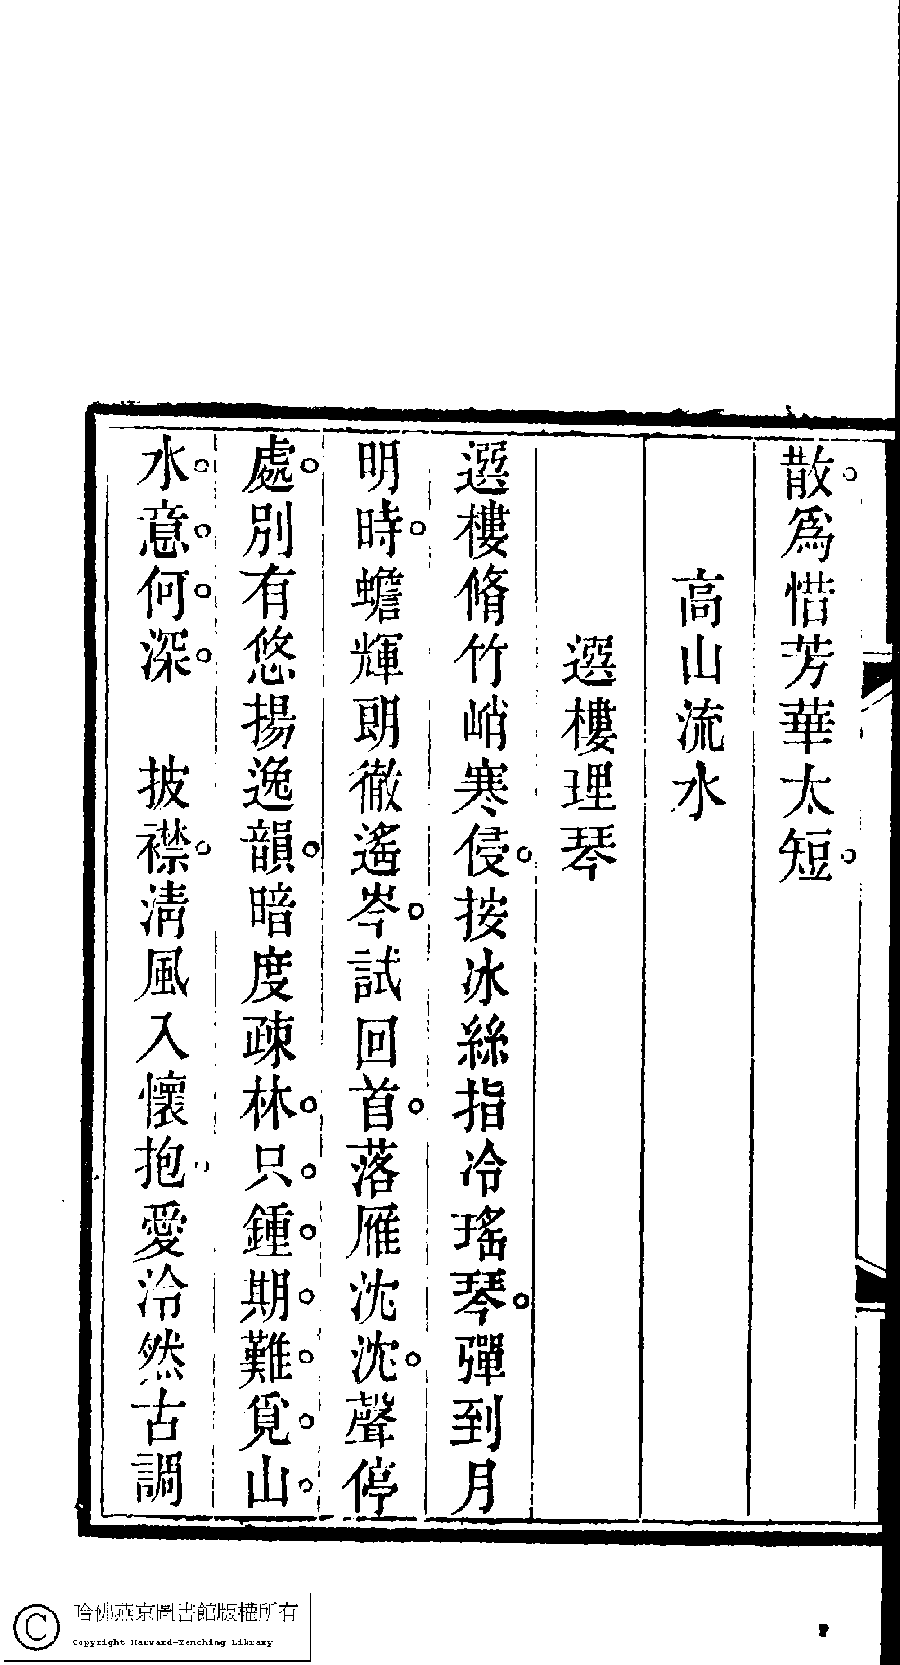 散。爲惜芳華太短。
高山流水
選樓理琴
選樓脩竹峭寒侵。按冰絲指冷瑤琴。彈到月
明時。蟾輝朗徹遙岑。試回首。落雁沈沈。聲停
處。別有悠揚逸韻。暗度疎林。只。鍾。期。難。覓。山。
水。意。何。深。　披襟。清風入懷抱愛泠然古調
哈佛燕京圖書館版權所有
Copyright Harvard-Yenching Library